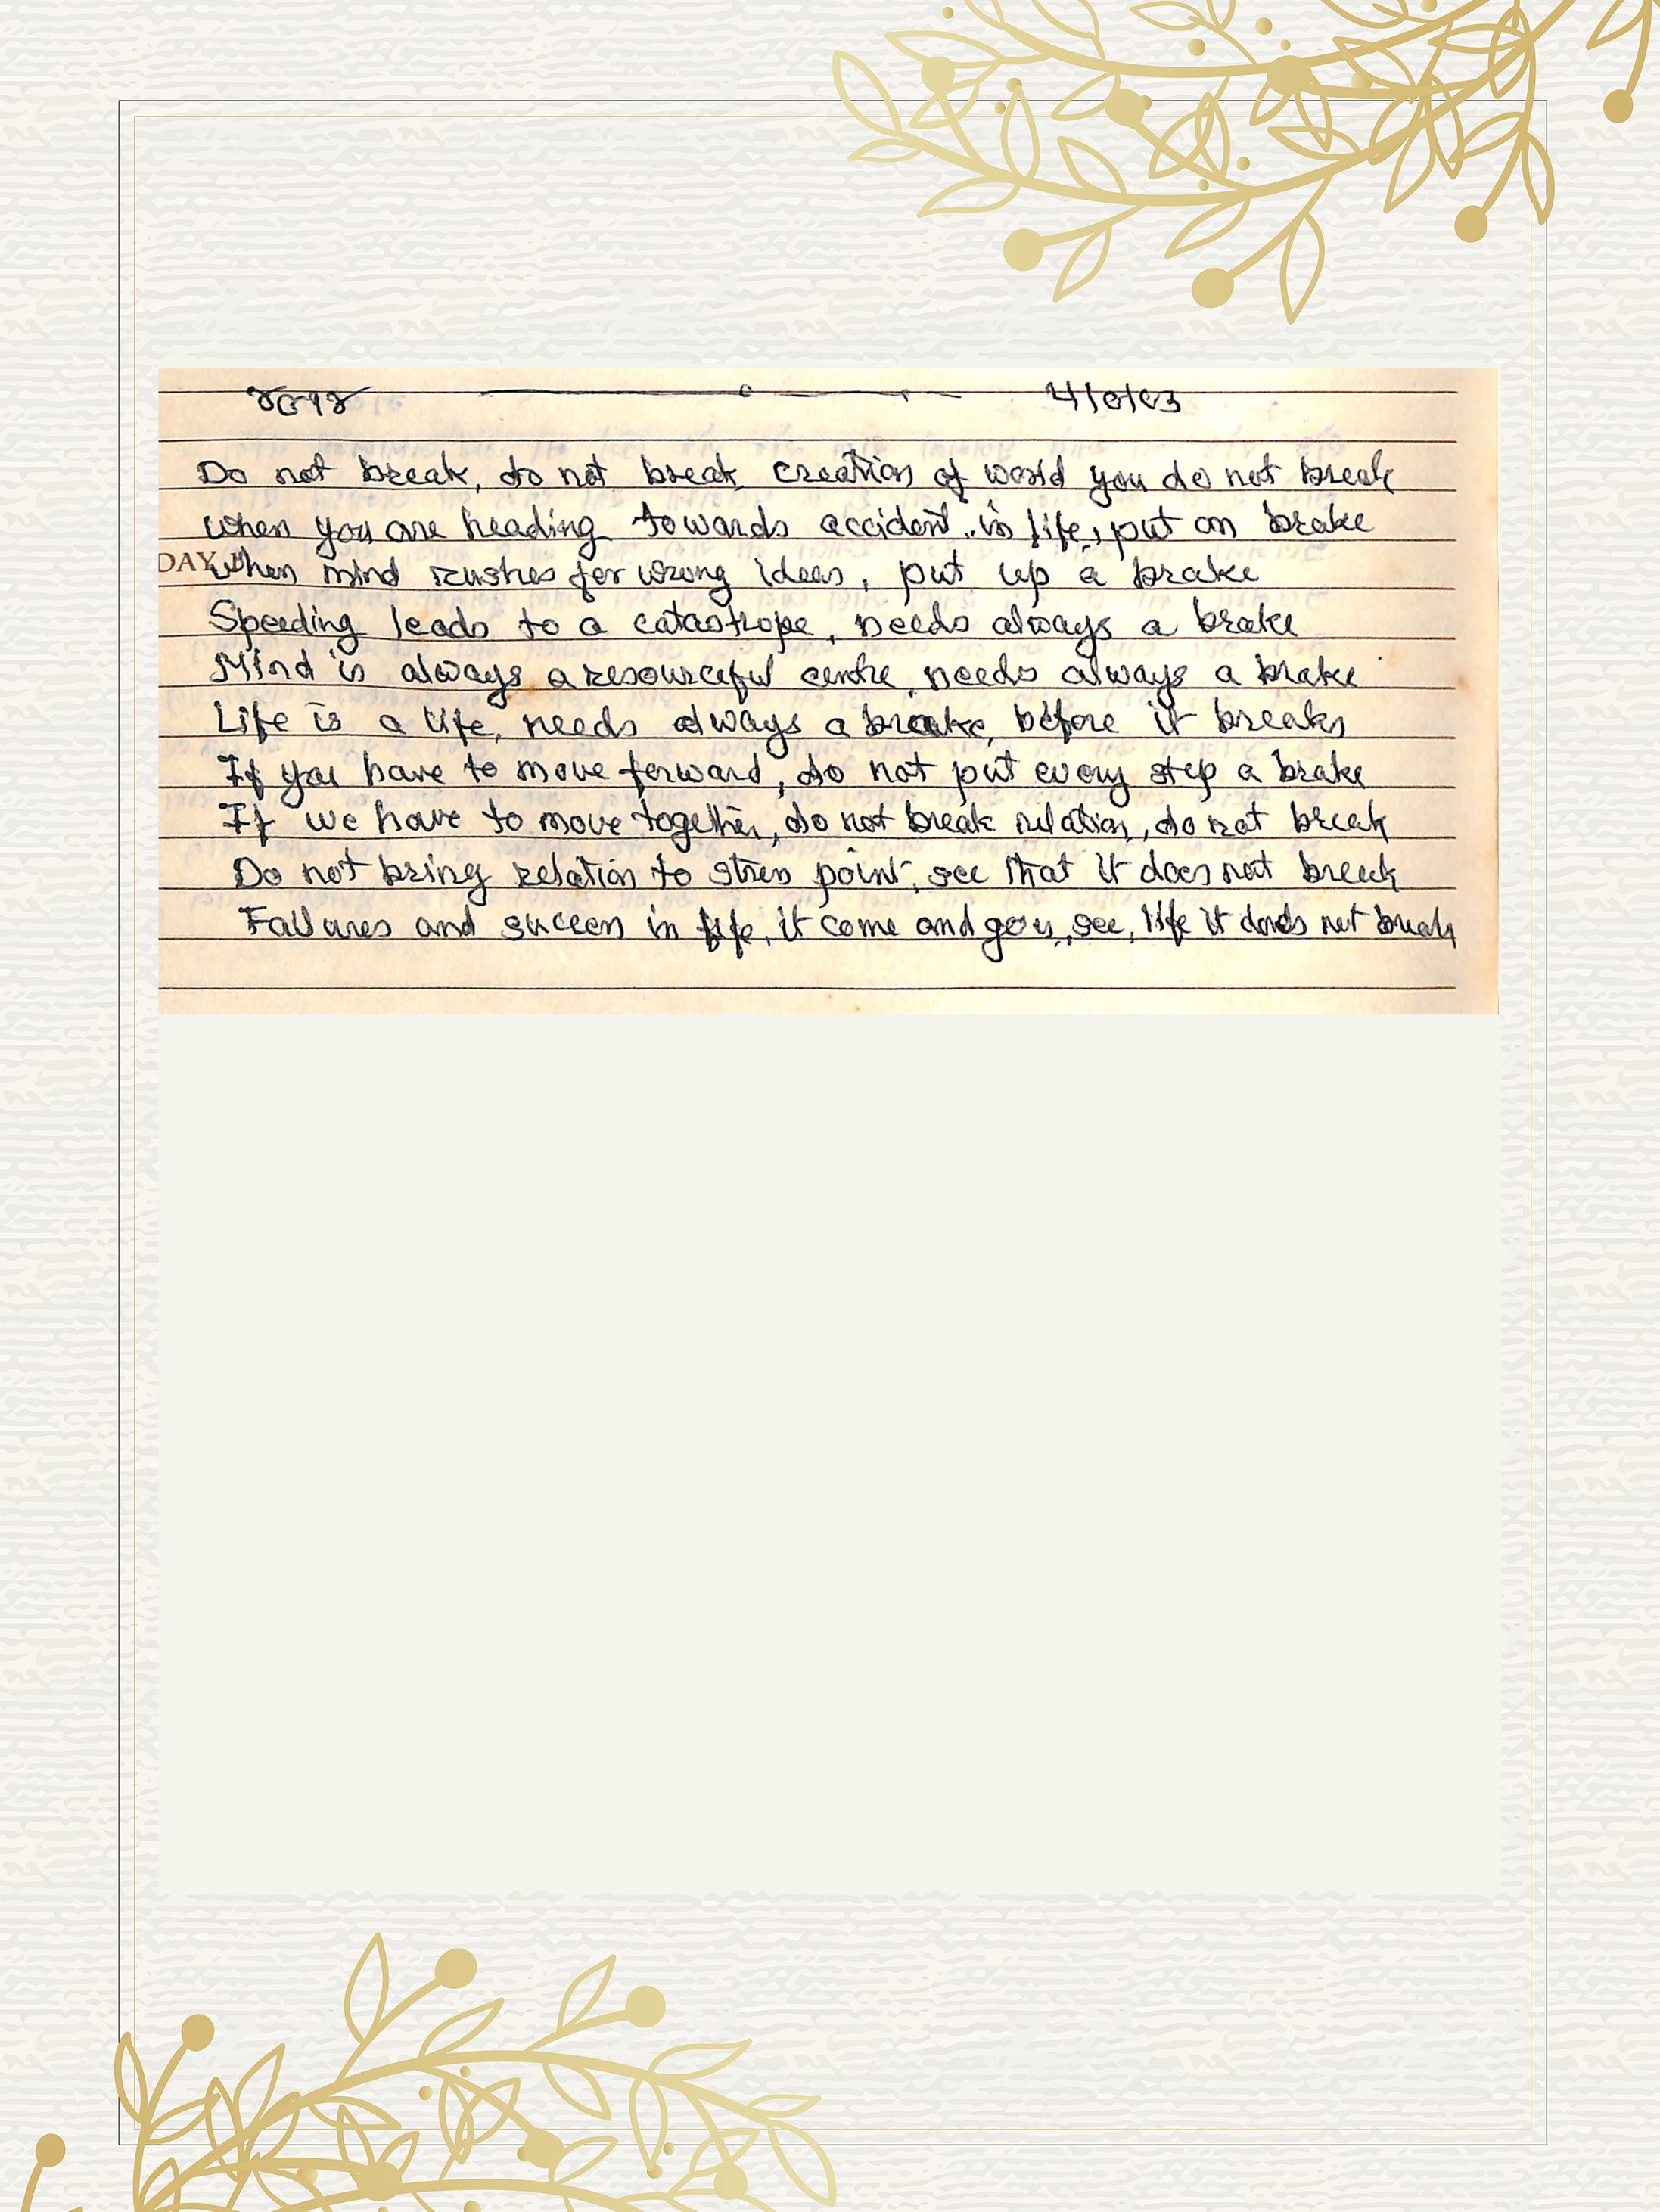 Do not break, do not break, creation of world you do not break
When you are heading towards accident in life, put on brake
DAY
When mind rushes for wrong ideas, put up a brake
Speeding leads to a catastrope, needs always a brake
Mind is always a resourceful centre, needs always a brake
Life is a life, needs always a brake, before it breaks
If you have to move forward, do not put every step a brake
If we have to move together, do not break relation, do not break
Do not bring relation to stress point, see that it does not break
Failures and success in life, it come and goes, see, life it does not break